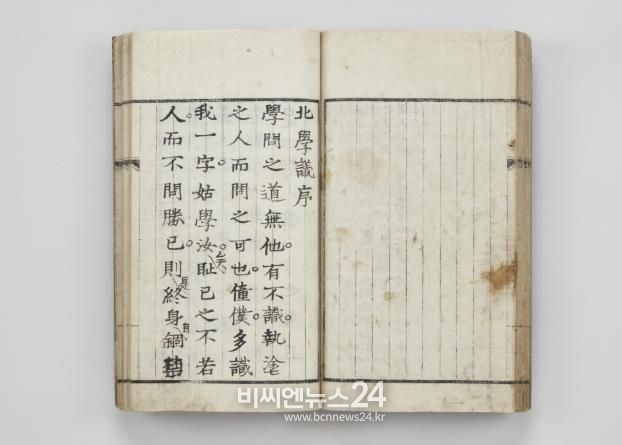 北學議序
學問之道無他。有不識。執塗
之人而問之可也。僮僕多識
我一字。姑學汝。矣恥已之不若
人而不問勝已。則是終身自錮
비씨엔뉴스24
www.bcnnews24.kr